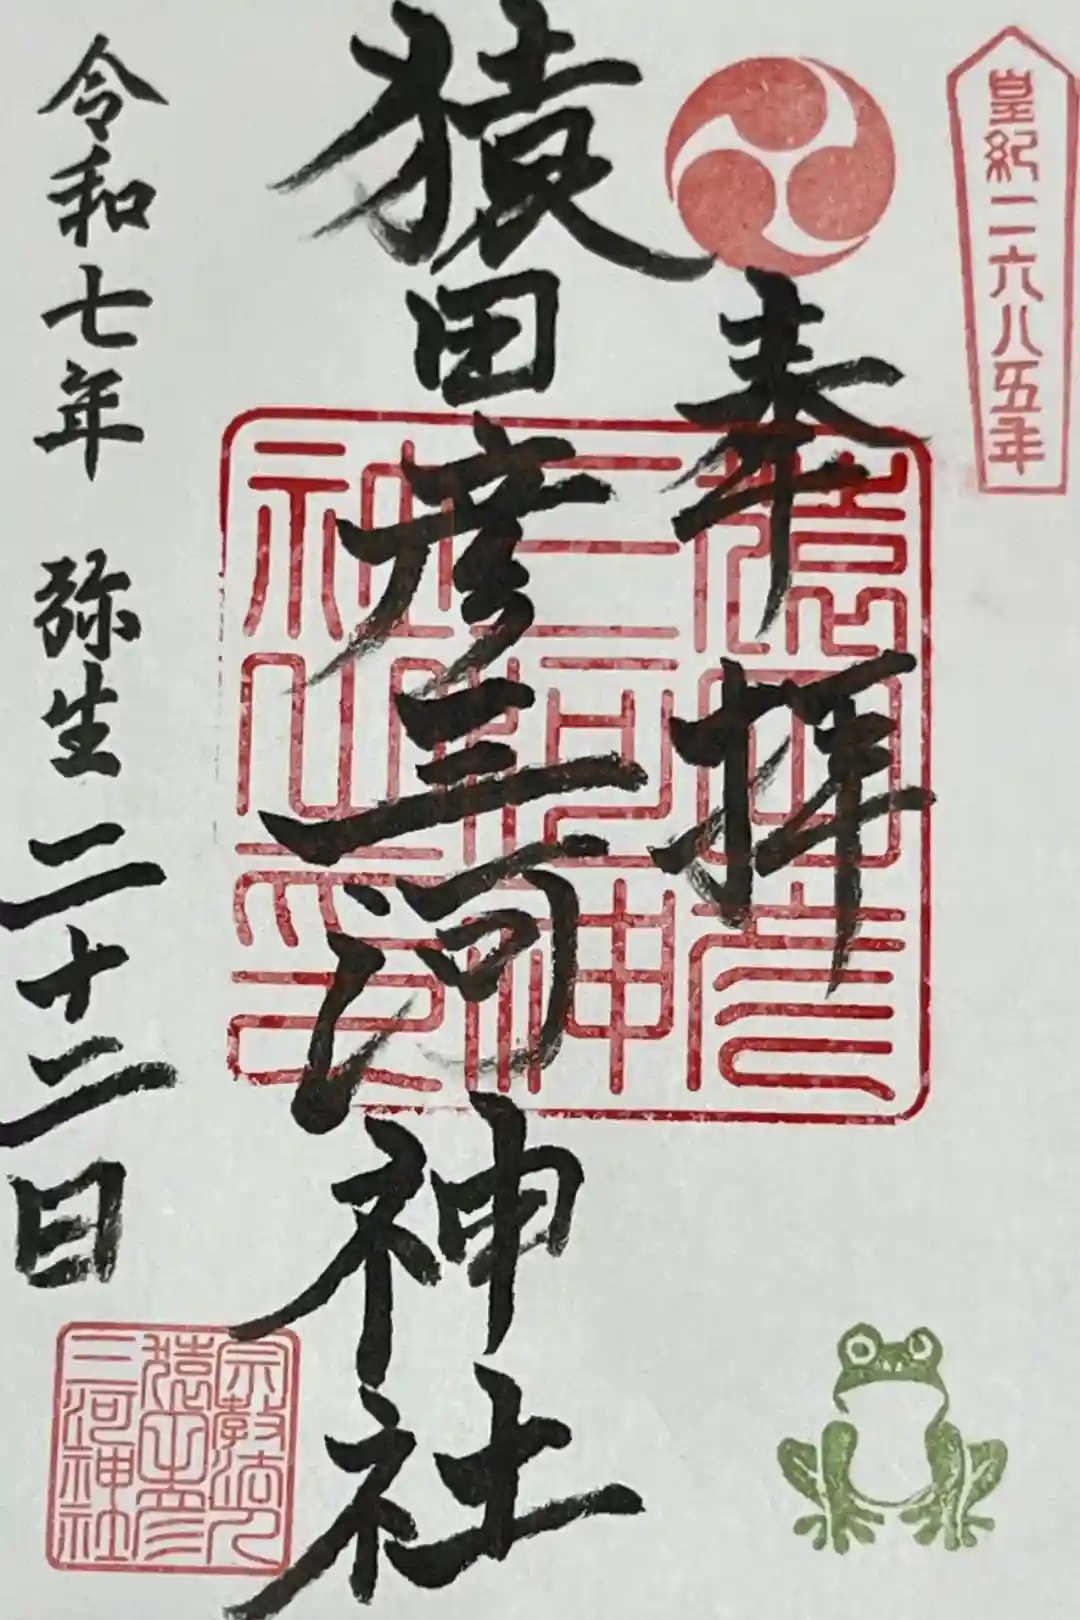 皇紀二六八五年
奉拝
猿田彦三河神社
猿田彦
三河神
社之印
令和七年 弥生 二十二日
宗教法人
猿田彦
三河神社